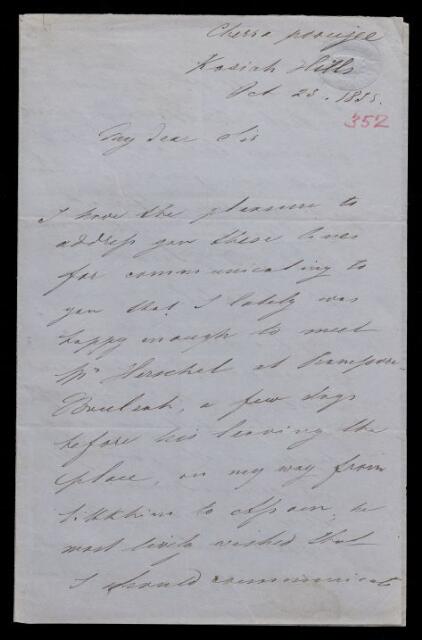 Cherra poonjee
Kasiah Hills
Oct 23. 1855.
352
My dear Sir
I have the pleasure to
address you these lines
for communicating to
you that I lately was
happy enough to meet
Mr Herschel at Rampore
Bauleah, a few days
before his leaving the
place, on my way from
Sikkhim to Assam, he
most lively wished that
I should communicate